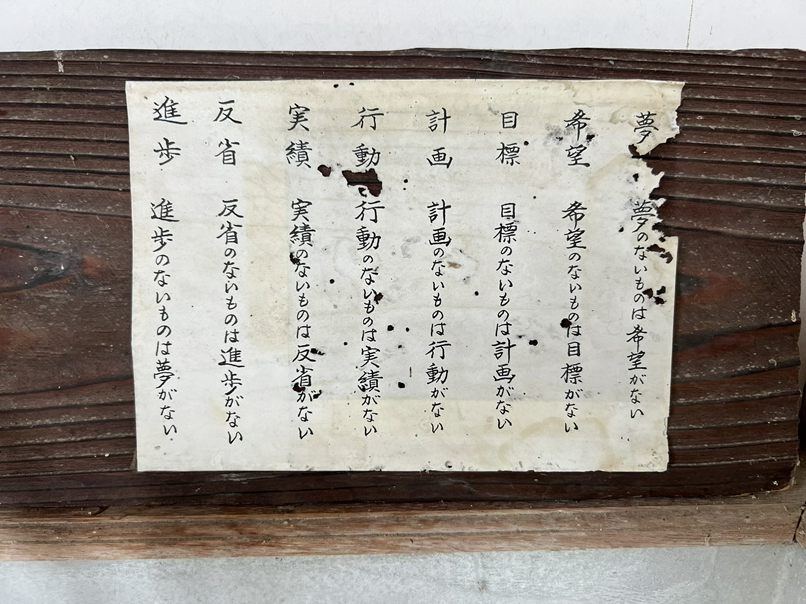 夢 夢のないものは希望がない
希望 希望のないものは目標がない
目標 目標のないものは計画がない
計画 計画のないものは行動がない
行動 行動のないものは実績がない
実績 実績のないものは反省がない
反省 反省のないものは進歩がない
進歩 進歩のないものは夢がない